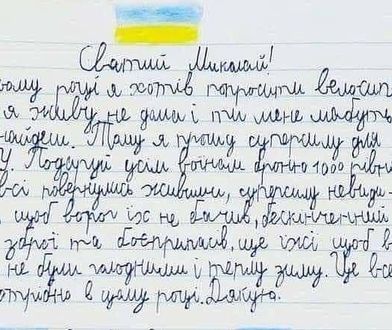 Святий Миколай!
ьому році я хотів попросити велосип
я живу не дома і ти мене мабуть
найдеш. Тому я прошу суперсилу для
У Подаруй усім воїнам броню 1000 рівн
всі повернулись живими, суперсилу невиди-
, щоб ворог їх не бачив, бескінченний
зброї та боєприпасів, ще їжі щоб в
не були голодними і теплу зиму. Це все
отрібно в цьому році. Дякую.